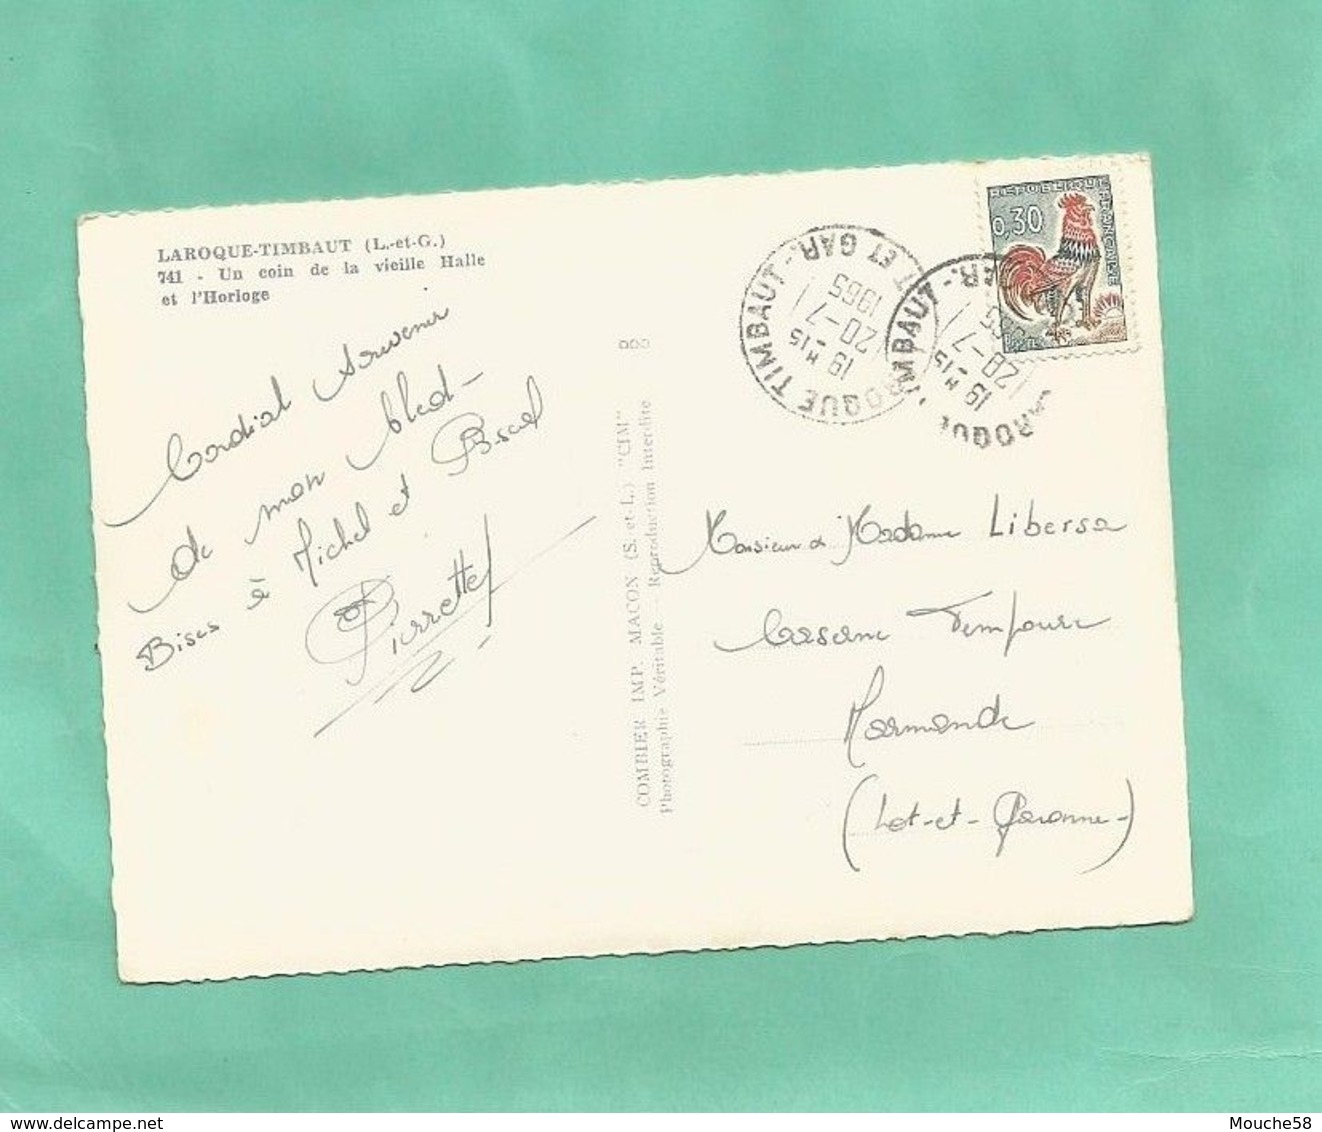 LAROQUE-TIMBAUT (L.-et-G.)
741 - Un coin de la vieille Halle
et l'Horloge
Cordial Souvenir
de mon bled -
Bises à Michel et Pascal
Pierrette
COMBIER IMP. MACON (S.-et-L.) "CIM"
Photographie Véritable - Reproduction Interdite
REPUBLIQUE FRANÇAISE
0,30
LAROQUE TIMBAUT - LOT ET GAR.
19 H 15
20-7
1965
19 H 15
20-7
Monsieur & Madame Libersa
Caserne
Marmande
(Lot-et-Garonne-)
Mouche58